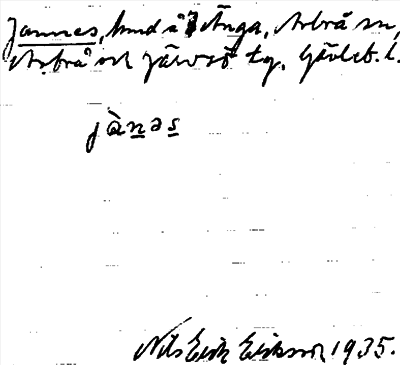 Jannes, hmd å Änga, Arbrå sn,
Arbrå och Järvsö tg, Gävleb. l.
jànəs
Nils Erik Eriksson 1935.